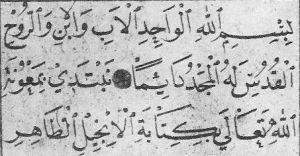 بِسْمِ اللهِ الْوَاحِدِ الْاَبِ وَالْاِبْنِ وَالرُّوحِ
الْقُدُسِ لَهُ الْمَجْدُ دَايِمًا ● نَبْتَدِي بِمَعُونَةِ
اللهِ تَعَالَى بِكِتَابَةِ الْاِنْجِيلِ الطَّاهِرِ